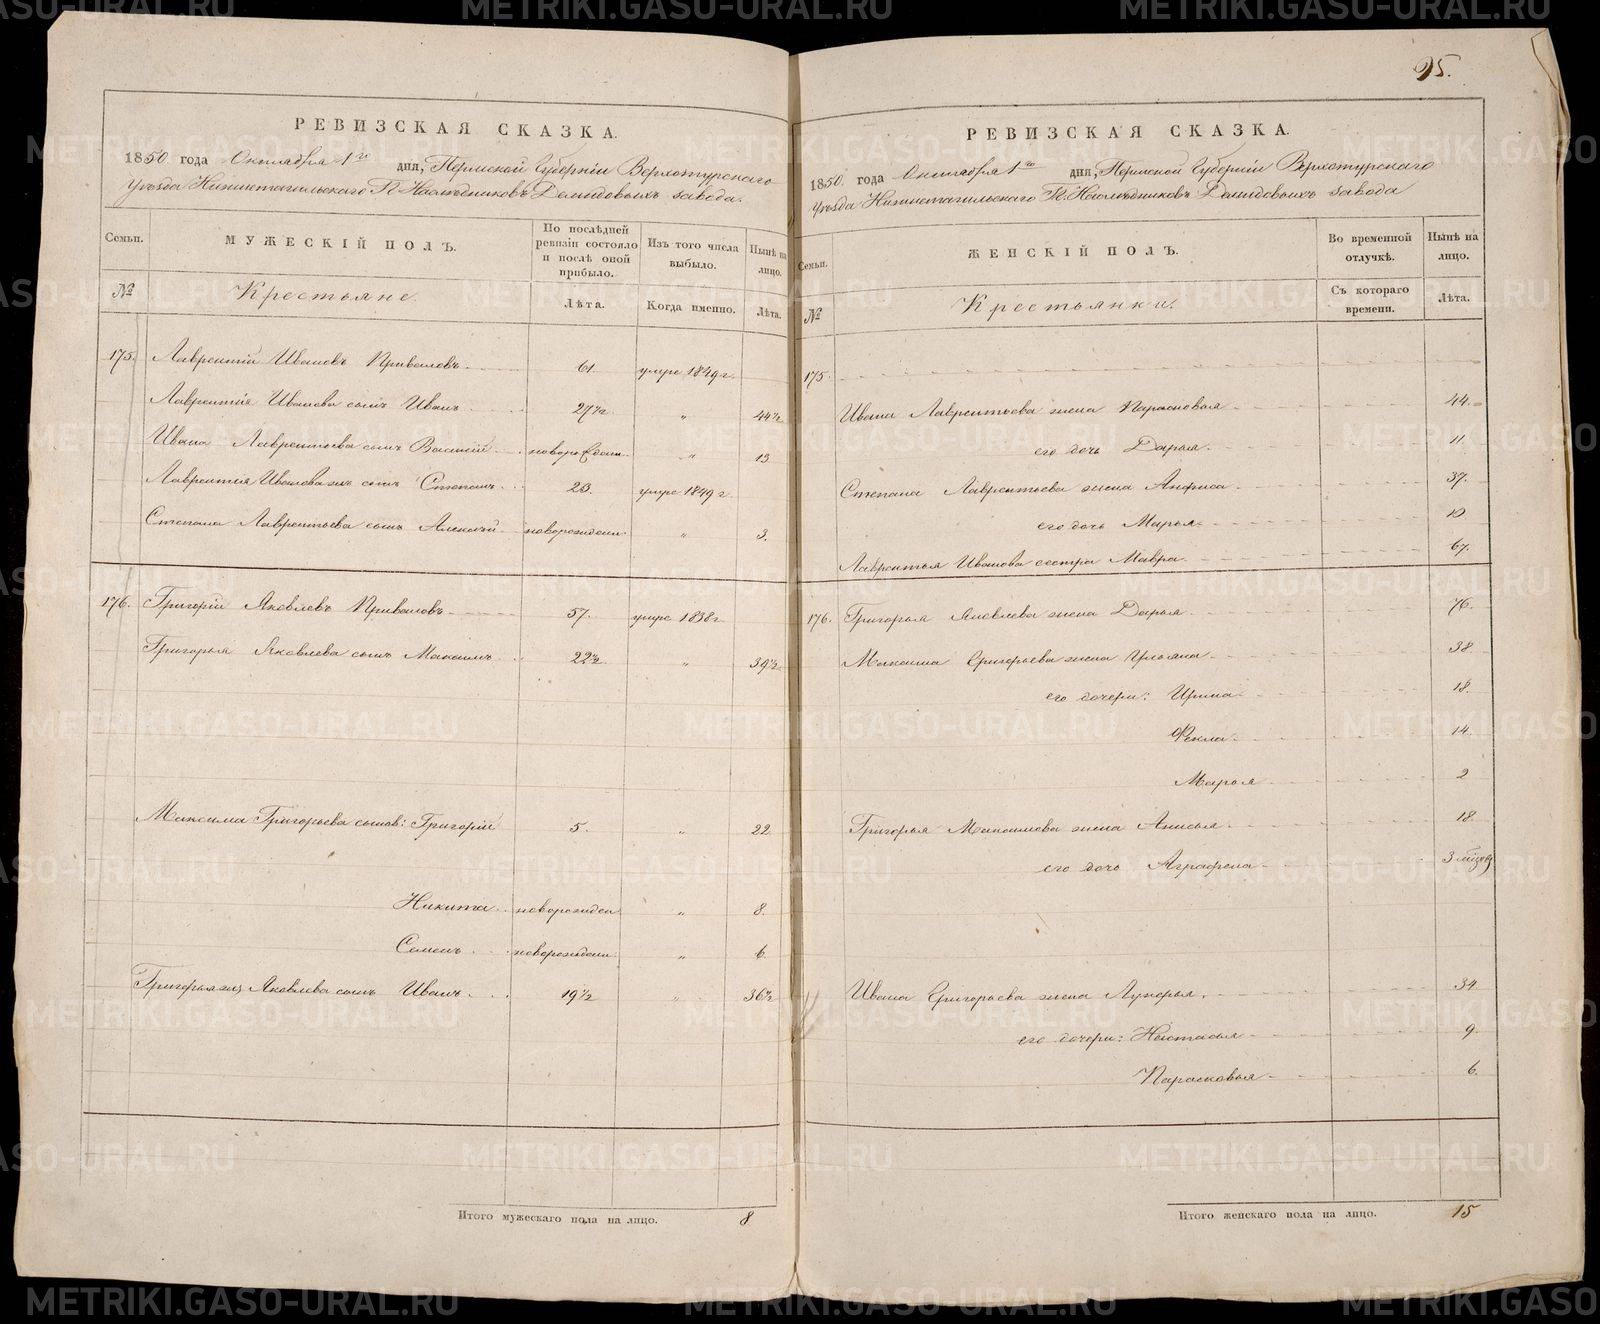 95.
РЕВИЗСКАЯ СКАЗКА.
1850 года Октября 1го дня, Пермской Губерніи Верхотурскаго
уѣзда Нижнетагильскаго Гг. Наслѣдниковъ Демидовыхъ завода.
Семьи. МУЖЕСКІЙ ПОЛЪ. По послѣдней ревизіи состояло и послѣ оной прибыло. Изъ того числа выбыло. Нынѣ на лицо.
№ Крестьяне. Лѣта. Когда именно. Лѣта.
175. Лаврентій Ивановъ Приваловъ 61. умре 1849 г.
Лаврентія Иванова сынъ Иванъ 27½ " 44½
Ивана Лаврентьева сынъ Василій новорожден. " 13
Лаврентія Иванова 2й сынъ Степанъ 23. умре 1849 г.
Степана Лаврентьева сынъ Алексѣй новорожден. " 3.
176. Григорій Яковлевъ Приваловъ 57. умре 1838 г.
Григорья Яковлева сынъ Максимъ 22½ " 39½
Максима Григорьева сынов: Григорій 5. " 22
Никита новорожден " 8.
Семенъ новорожден. " 6
Григорья Яковлева сынъ Иванъ 19½ " 36½
Итого мужескаго пола на лицо. 8
РЕВИЗСКАЯ СКАЗКА.
1850. года Октября 1го дня, Пермской Губерніи Верхотурскаго
уѣзда Нижнетагильскаго Гг. Наслѣдниковъ Демидовыхъ завода
Семьи. ЖЕНСКІЙ ПОЛЪ. Во временной отлучкѣ. Нынѣ на лицо.
№ Крестьянки. Съ котораго времени. Лѣта.
175.
Ивана Лаврентьева жена Парасковья 44.
его дочь Дарья 11.
Степана Лаврентьева жена Анфиса 37.
его дочь Марья 10
Лаврентья Иванова сестра Мавра 67.
176. Григорья Яковлева жена Дарья 76.
Максима Григорьева жена Ульяна 38.
его дочери: Ирина 18.
Фекла 14.
Марья 2
Григорья Максимова жена Анисья 18.
его дочь Аграфена 3
Ивана Григорьева жена Лукерья 34
его дочери: Настасья 9.
Парасковья 6.
Итого женскаго пола на лицо. 15
METRIKI.GASO-URAL.RU